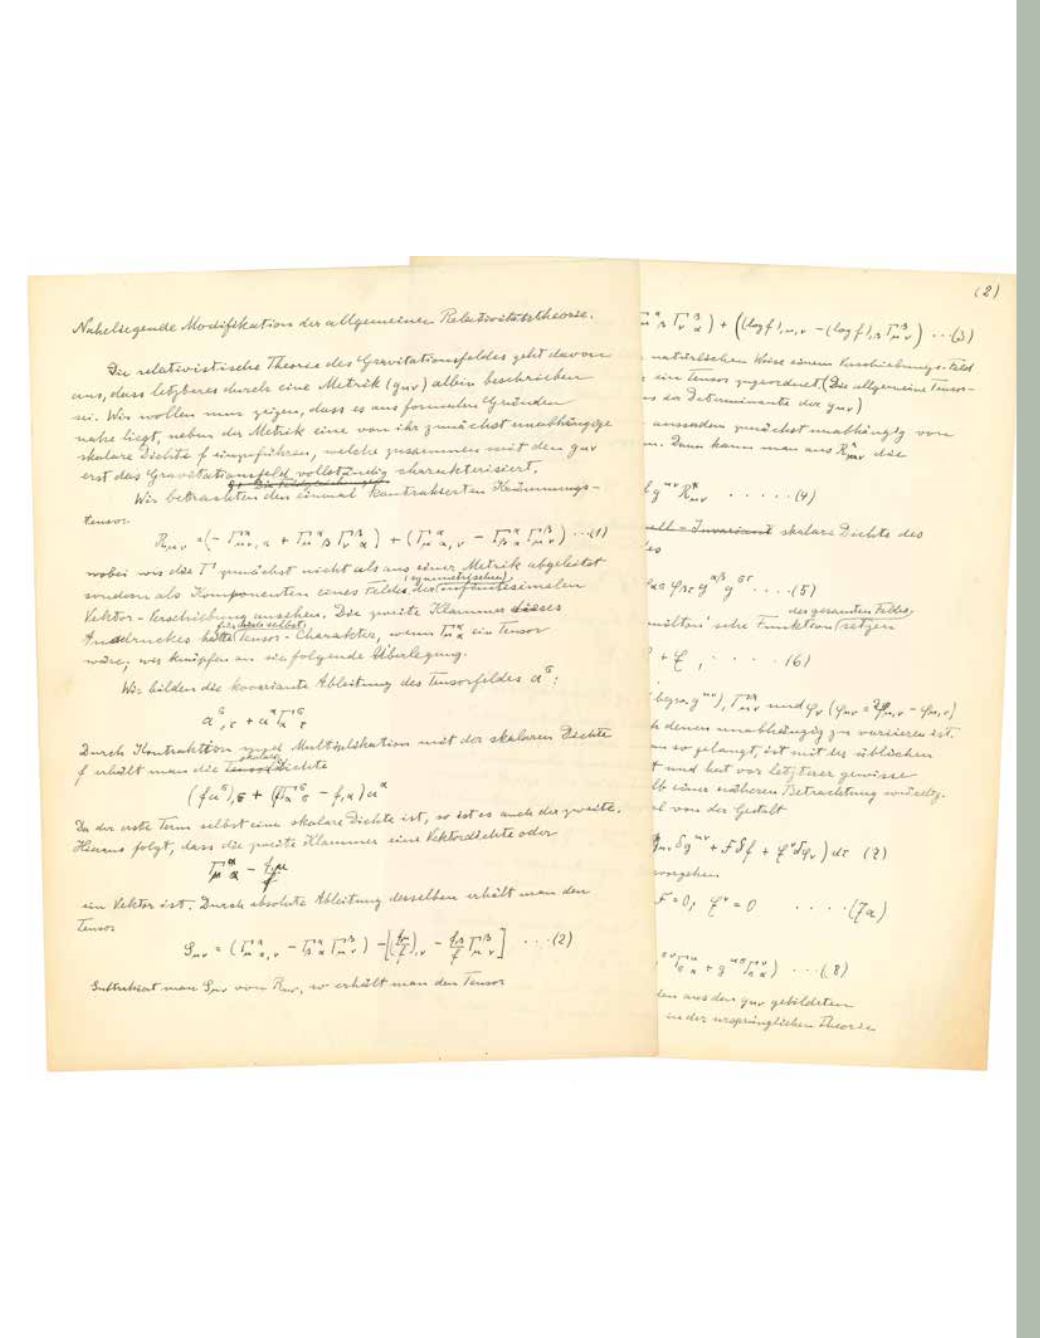 Naheliegende Modifikation der allgemeinen Relativitätstheorie.
Die relativistische Theorie des Gravitationsfeldes geht davon
aus, dass letzteres durch eine Metrik (gμν) allein beschrieben
sei. Wir wollen nun zeigen, dass es aus formalen Gründen
nahe liegt, neben der Metrik eine von ihr zunächst unabhängige
skalare Dichte f einzuführen, welche zusammen mit den gμν
erst das Gravitationsfeld vollständig charakterisiert.
Wir betrachten den einmal kontrahierten Krümmungs-
tensor
Rμν = (- Γμ^α ν, α + Γμ^α β Γν^β α) + (Γμ^α α, ν - Γβ^α α Γμ^β ν) ...(1)
wobei wir die Γ zunächst nicht als aus einer Metrik abgeleitet
sondern als Komponenten eines Feldes der (symmetrischen) infinitesimalen
Vektor-Verschiebung ansehen. Die zweite Klammer dieses
Ausdruckes hätte für sich selbst Tensor-Charakter, wenn Γμ^α α ein Tensor
wäre; wir knüpfen an sie folgende Überlegung.
Wir bilden die kovariante Ableitung des Tensorfeldes a^σ:
a^σ,τ + a^α Γα^σ τ
Durch Kontraktion und Multiplikation mit der skalaren Dichte
f erhält man die skalare Dichte
(fa^σ),σ + (fΓα^σ σ - f,α)a^α
Da der erste Term selbst eine skalare Dichte ist, so ist es auch der zweite.
Hieraus folgt, dass die zweite Klammer eine Vektordichte oder
Γμ^α α - f,μ/f
ein Vektor ist. Durch absolute Ableitung derselben erhält man den
Tensor
Sμν = (Γμ^α α,ν - Γβ^α α Γμ^β ν) - [(f,μ/f),ν - f,β/f Γμ^β ν] ...(2)
Subtrahiert man Sμν von Rμν, so erhält man den Tensor
(2)
Γν^β α) + ((log f),μ,ν - (log f),β Γμ^β ν) ...(3)
natürlichen Weise einem Verschiebungs-Feld
ein Tensor zugeordnet. (Die allgemeine Tensor-
der Determinante der gμν)
ausserdem zunächst unabhängig von
Dann kann man aus R*μν die
g^μν R*μν .....(4)
skalare Dichte des
φβτ g^αβ g^στ ....(5)
des gesamten Feldes
Funktion setzen
+ , ....(6)
(bezw. g^μν), Γμν^α und φν (φμν = φμ,ν - φν,μ)
denen unabhängig zu variieren ist.
so gelangt, ist mit der üblichen
und hat vor letzterer gewisse
einer näheren Betrachtung würdig.
von der Gestalt
δg^μν + Fδf + φ^νδφν) dτ (7)
F=0; φ^ν=0 ....(7a)
...(8)
aus den gμν gebildeten
in der ursprünglichen Theorie